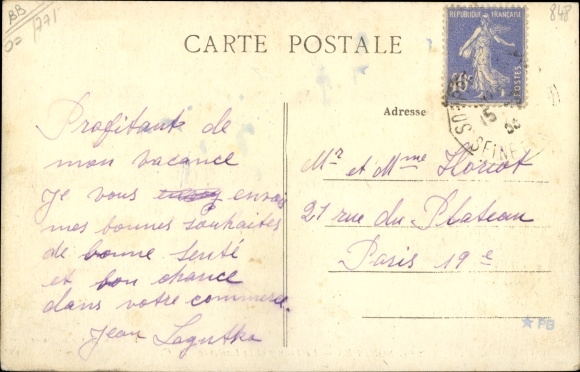 BB
1271
848
CARTE POSTALE
REPUBLIQUE FRANÇAISE
POSTES
SEINE
Adresse
Profitants de
mon vacance
Je vous envois
mes bonnes souhaites
de bonne senté
et bon chance
dans votre commerce.
Jean Lagutka
Mr et Mme Floriot
21 rue du Plateau
Paris 19e
★ PB